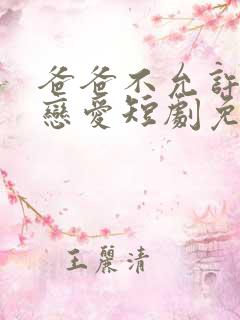 爸爸不允許
戀愛短劇免
王麗清